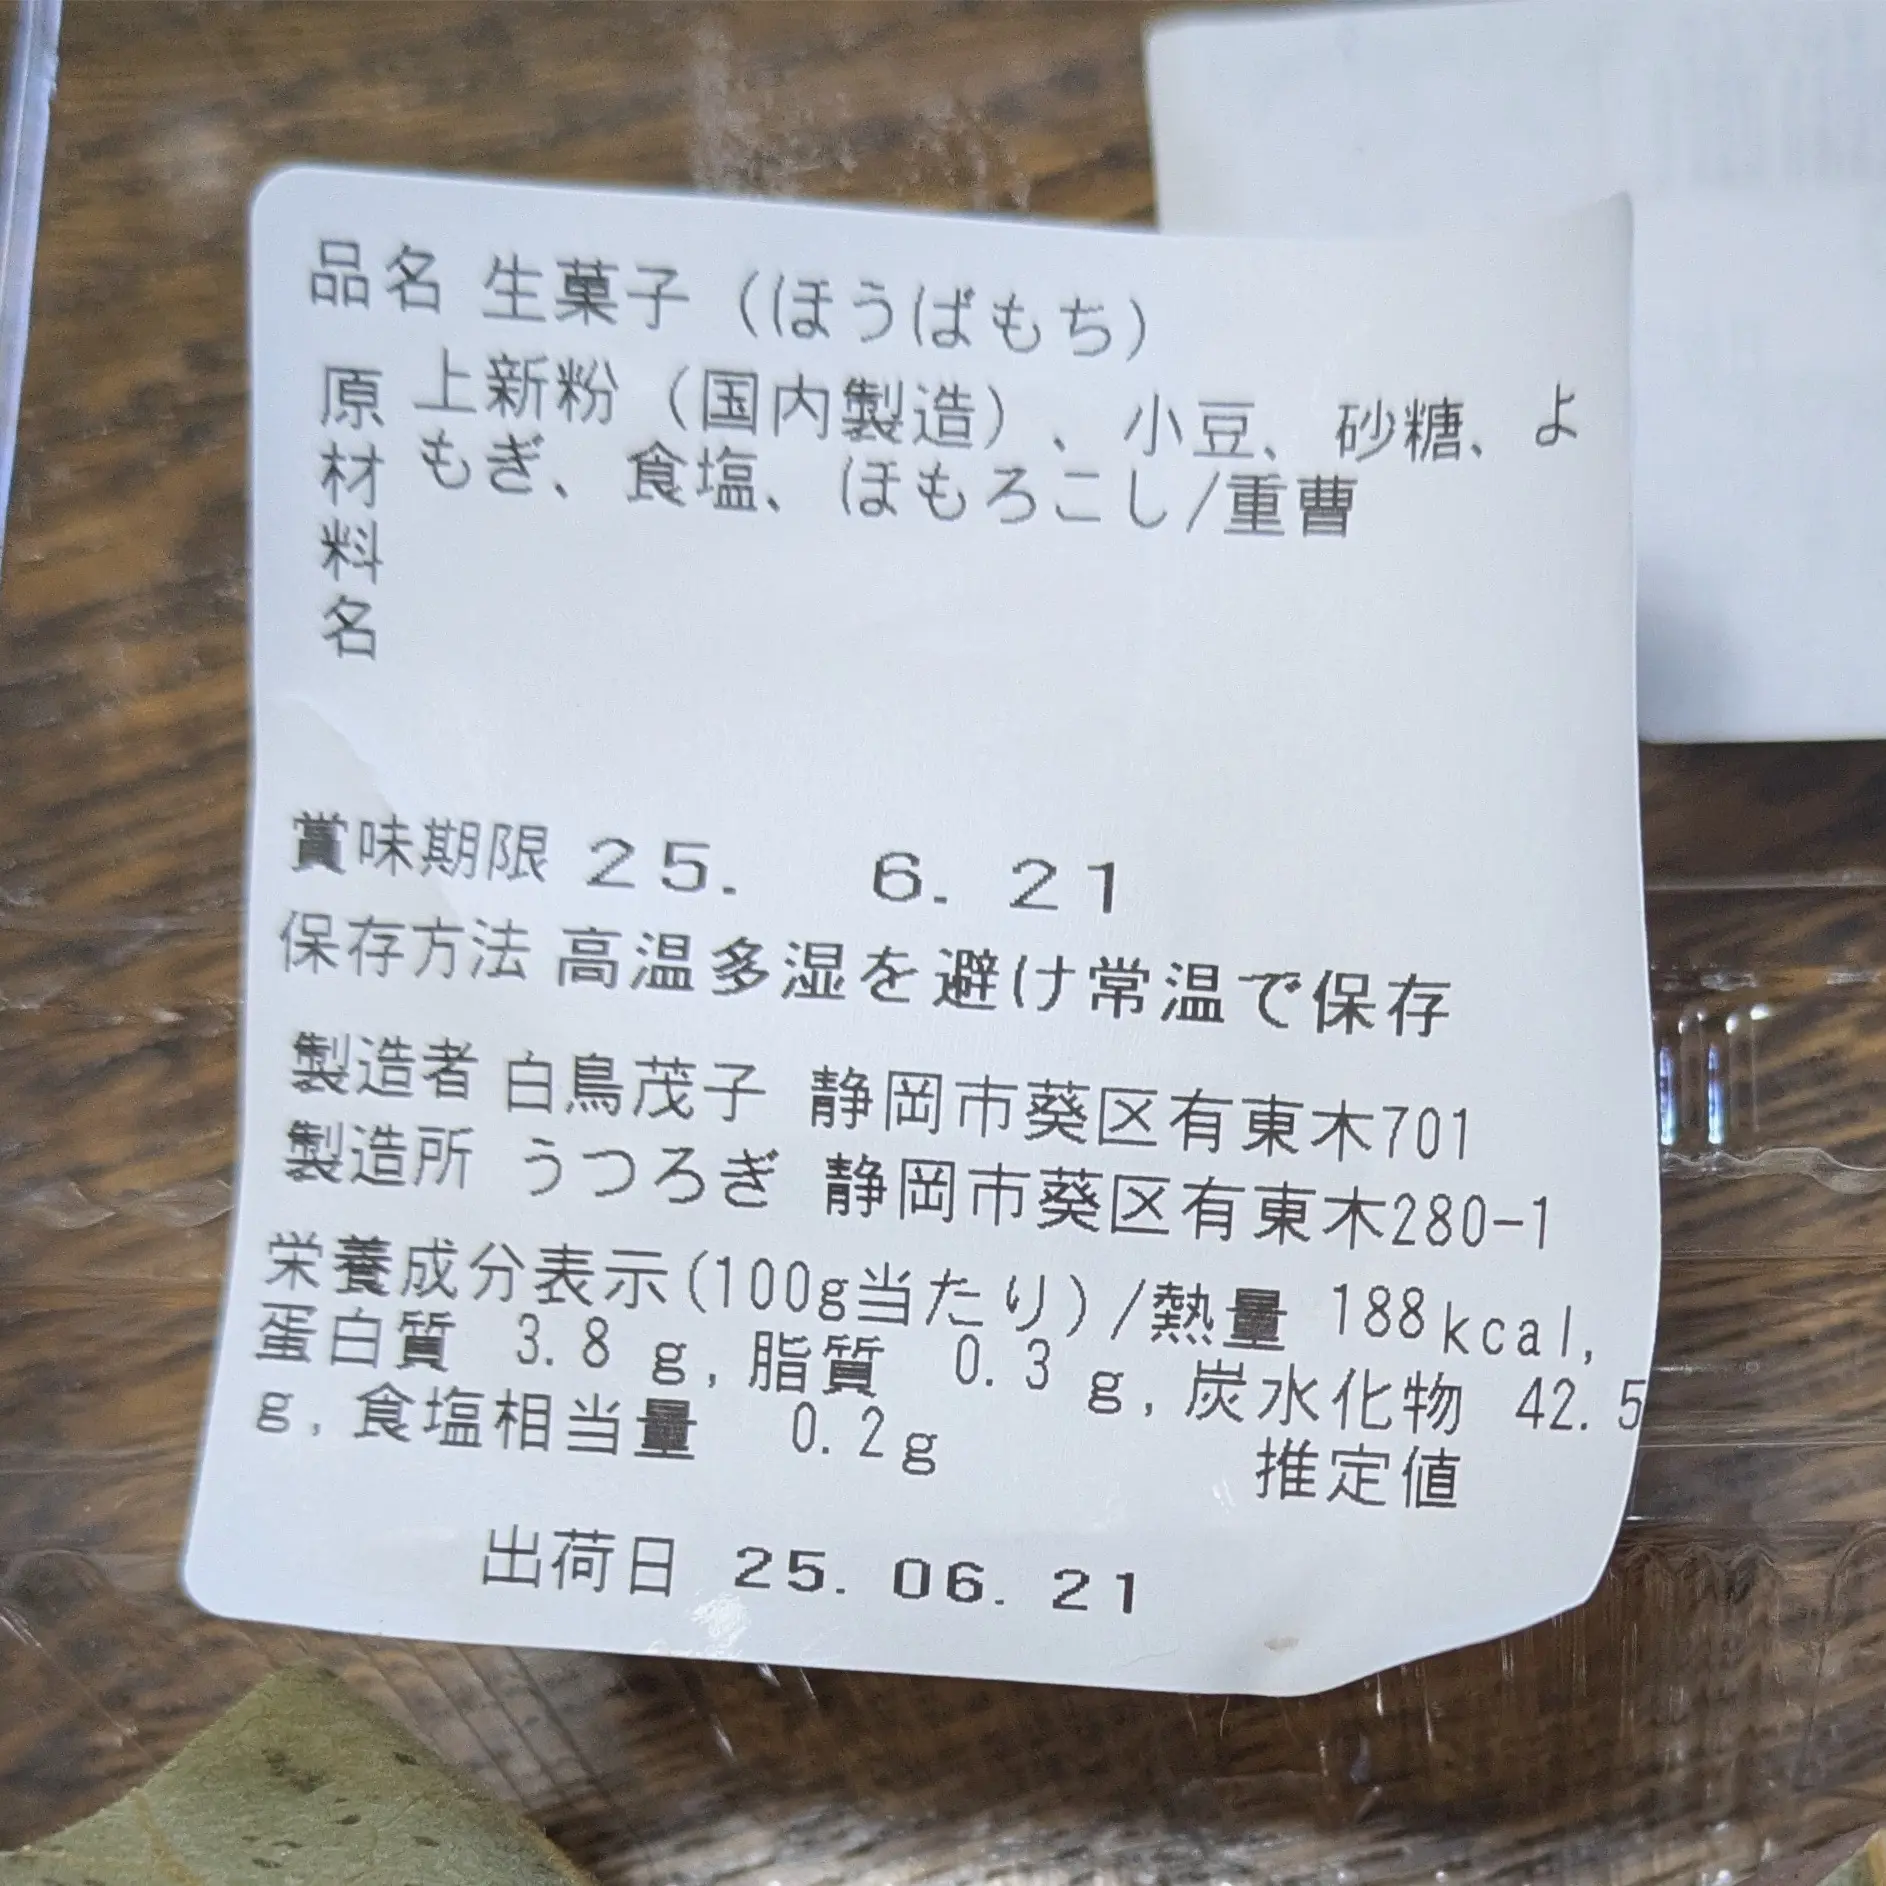 品名 生菓子（ほうばもち）
原材料名 上新粉（国内製造）、小豆、砂糖、よ
もぎ、食塩、ほもろこし/重曹
賞味期限 25. 6. 21
保存方法 高温多湿を避け常温で保存
製造者 白鳥茂子 静岡市葵区有東木701
製造所 うつろぎ 静岡市葵区有東木280-1
栄養成分表示(100g当たり)/熱量 188kcal,
蛋白質 3.8 g,脂質 0.3 g,炭水化物 42.5
g,食塩相当量 0.2g
推定値
出荷日 25. 06. 21